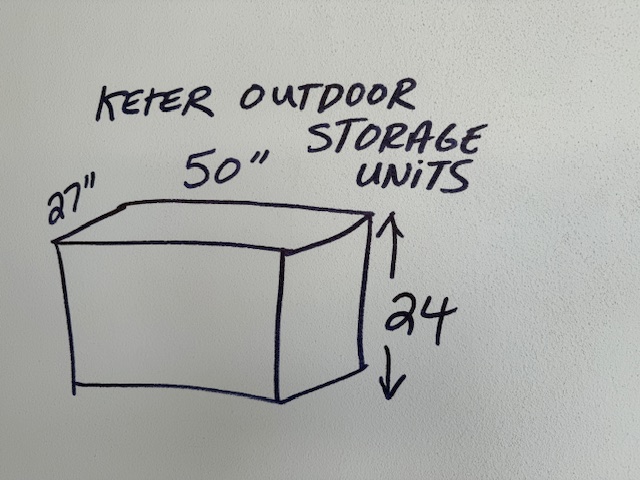 KETER OUTDOOR
STORAGE
50" UNITS
27"
24